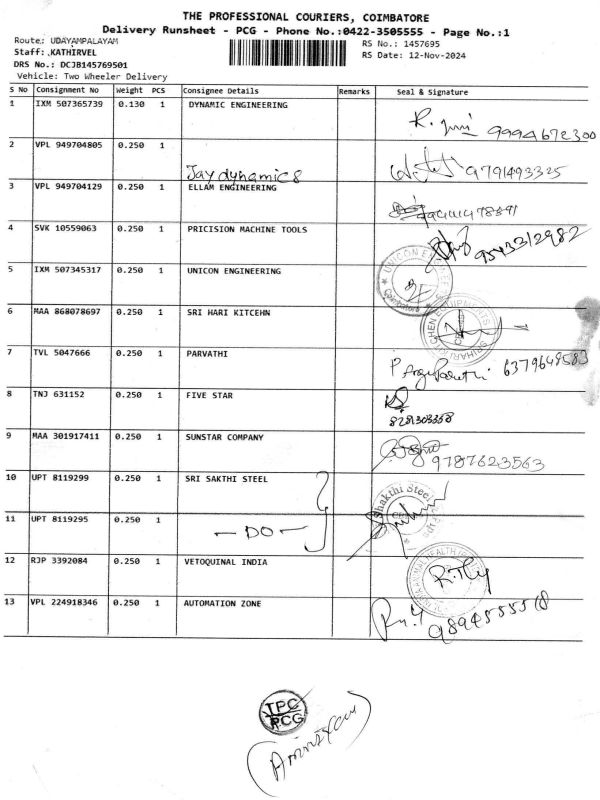 THE PROFESSIONAL COURIERS, COIMBATORE
Delivery Runsheet - PCG - Phone No.:0422-3505555 - Page No.:1
Route: UDAYAMPALAYAM
RS No.: 1457695
Staff: .KATHIRVEL
RS Date: 12-Nov-2024
DRS No.: DCJB145769501
Vehicle: Two Wheeler Delivery
S No Consignment No Weight PCS Consignee Details Remarks Seal & Signature
1 IXM 507365739 0.130 1 DYNAMIC ENGINEERING
9994672300
2 VPL 949704805 0.250 1 Jay dynamics
9791493325
3 VPL 949704129 0.250 1 ELLAM ENGINEERING
4 SVK 10559063 0.250 1 PRICISION MACHINE TOOLS
9543312982
5 IXM 507345317 0.250 1 UNICON ENGINEERING
UNICON ENGINEE
Coimbatore
6 MAA 868078697 0.250 1 SRI HARI KITCEHN
SRI HARI KITCHEN EQUIPMENTS
7 TVL 5047666 0.250 1 PARVATHI
6379649583
8 TNJ 631152 0.250 1 FIVE STAR
9 MAA 301917411 0.250 1 SUNSTAR COMPANY
9787623563
10 UPT 8119299 0.250 1 SRI SAKTHI STEEL
hakthi Steel
11 UPT 8119295 0.250 1 - DO -
12 RJP 3392084 0.250 1 VETOQUINAL INDIA
ANIMAL HEALTH
13 VPL 224918346 0.250 1 AUTOMATION ZONE
TPC
PCG